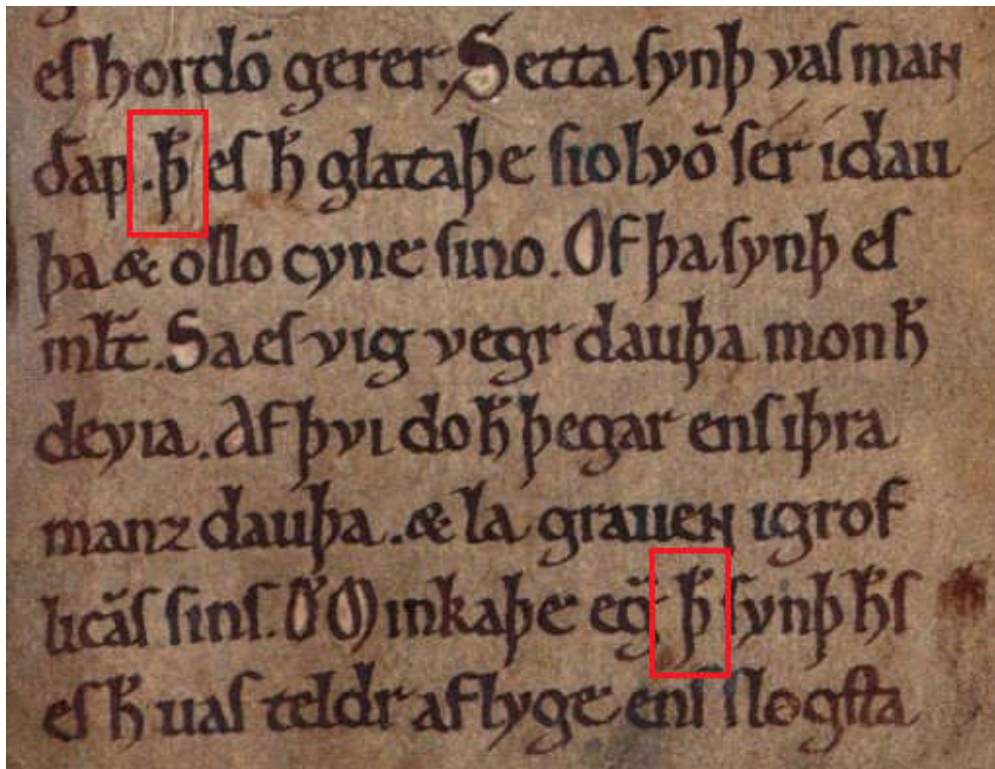 eſ hordō gerer. Setta ſynþ vaſ maɴ
dāp. þ̄ eſ ħ glataþe ſiolvō ſer ıdau
þa & ollo cyne ſino. Of þa ſynþ eſ
mł̄t. Sa eſ vıg vegr dauþa mon ħ
deyıa. Af þvı do ħ þegar enſ ıþra
manz dauþa. & la graueɴ ıgrof
lıcāſ ſınſ. Mınkaþe eḡ þ̄ ſynþ ħſ
eſ ħ uaſ teldr af lyge enſ ſløgſta